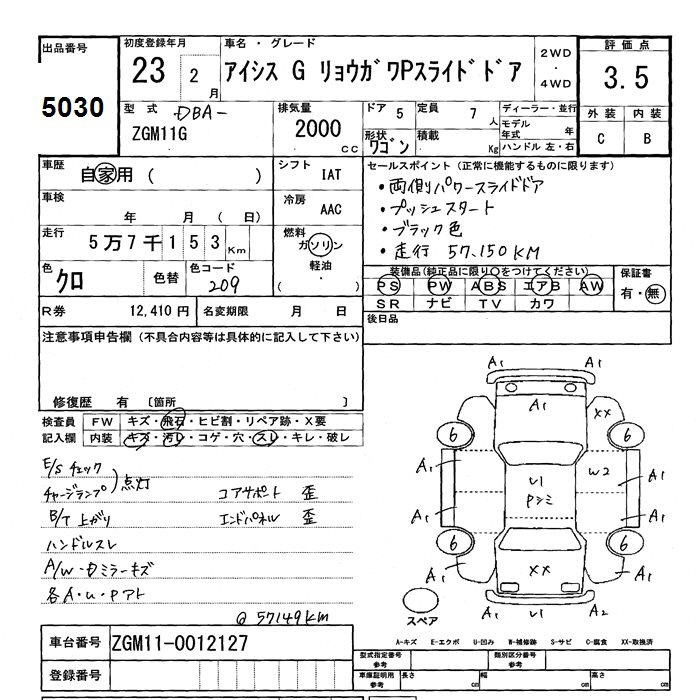 出品番号
5030
初度登録年月
23 2月
車名・グレード
アイシス G リョウガワPスライドドア
2WD・4WD
評価点
3.5
外装 内装
C B
型式
DBA-
ZGM11G
排気量
2000 cc
ドア 5
形状 ワゴン
定員 7 人
積載 Kg
ディーラー・並行
モデル年式 年
ハンドル 左・右
車歴
自家用 ( )
シフト
IAT
車検
年 月 ( 日)
冷房
AAC
走行
5万7千153 Km
燃料
ガソリン
軽油
( ・ )
色
クロ
色替
色コード
209
R券 12,410円
名変期限 月 日
セールスポイント (正常に機能するものに限ります)
・両側パワースライドドア
・プッシュスタート
・ブラック色
・走行 57,150KM
装備品(純正品に限り○をつけてください)
PS PW ABS エアB AW
SR ナビ TV カワ
保証書
有・無
後日品
注意事項申告欄 (不具合内容等は具体的に記入して下さい)
修復歴 有 〔箇所 〕
検査員記入欄
FW キズ・飛石・ヒビ割・リペア跡・X要
内装 キズ・汚レ・コゲ・穴・スレ・キレ・破レ
E/Sチェック
チャージランプ ) 点灯
B/T 上がり
ハンドルスレ
A/W・Dミラーキズ
各A・U・Pアト
コアサポート 歪
エンドパネル 歪
@57149km
A1 A1
A1 XX
6 6
A1 U1 W2 A1
Pシミ
A1 A1
6 6
A1 XX A1
A1 U1 A2
スペア
A-キズ E-エクボ U-凹み W-補修跡 S-サビ C-腐食 XX-取換済
車台番号 ZGM11-0012127
登録番号
型式指定番号 参考
類別区分番号 参考
車庫証明用 参考 長さ cm 幅 cm 高さ cm